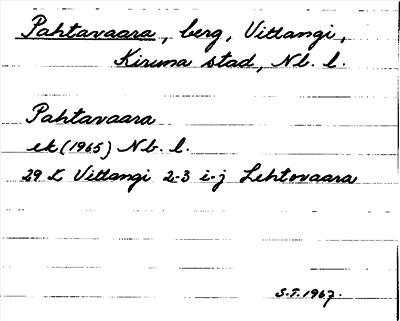 Pahtavaara, berg, Vittangi,
Kiruna stad, Nb. l.
Pahtavaara
ek (1965) Nb. l.
29 L Vittangi 2-3 i-j Lehtovaara
S.F. 1967.